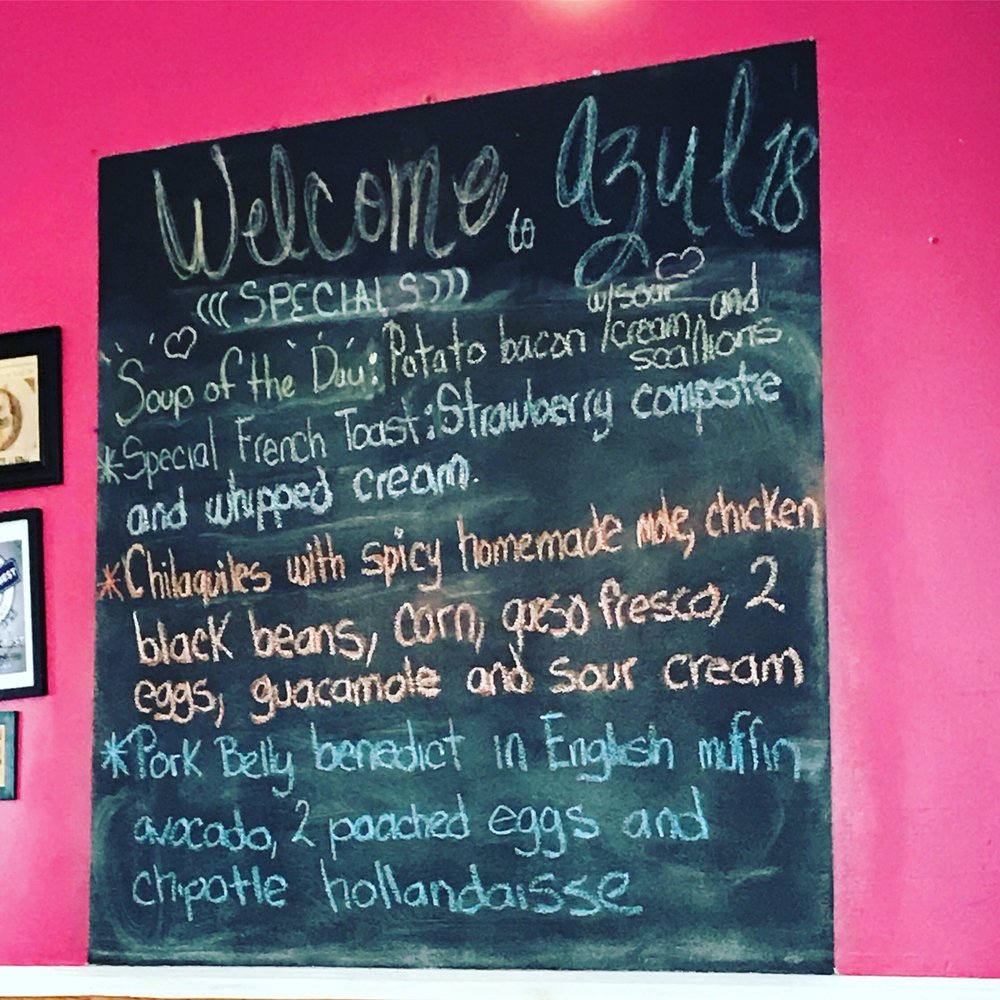 Welcome to azul 18
(((SPECIALS)))
Soup of the Day: Potato bacon w/sour cream and scallions
*Special French Toast: Strawberry compote
and whipped cream.
*Chilaquiles with spicy homemade mole, chicken
black beans, corn, queso fresco, 2
eggs, guacamole and sour cream
*Pork Belly benedict in English muffin,
avocado, 2 poached eggs and
chipotle hollandaisse